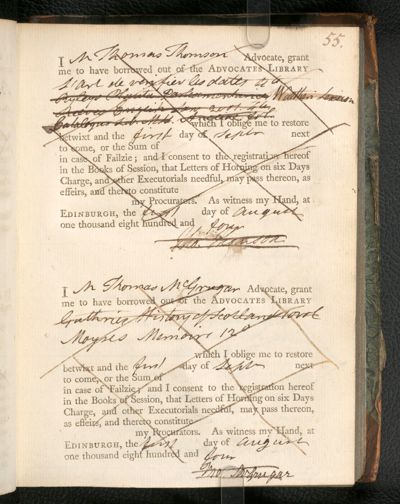 55.
I M Thomas Thomson Advocate, grant
me to have borrowed out of the ADVOCATES LIBRARY
L'art de verifier les dates
Catalogus
which I oblige me to restore
betwixt and the first day of Septr next
to come, or the Sum of
in case of Failzie; and I consent to the registration hereof
in the Books of Session, that Letters of Horning on six Days
Charge, and other Executorials needful, may pass thereon, as
effeirs, and thereto constitute
my Procurators. As witness my Hand, at
EDINBURGH, the first day of August
one thousand eight hundred and four
I M Thomas McGrugar Advocate, grant
me to have borrowed out of the ADVOCATES LIBRARY
Guthries History of Scotland
Moyses Memoirs 12o
which I oblige me to restore
betwixt and the first day of Septr next
to come, or the Sum of
in case of Failzie; and I consent to the registration hereof
in the Books of Session, that Letters of Horning on six Days
Charge, and other Executorials needful, may pass thereon,
as effeirs, and thereto constitute
my Procurators. As witness my Hand, at
EDINBURGH, the first day of August
one thousand eight hundred and four
Tho. McGrugar